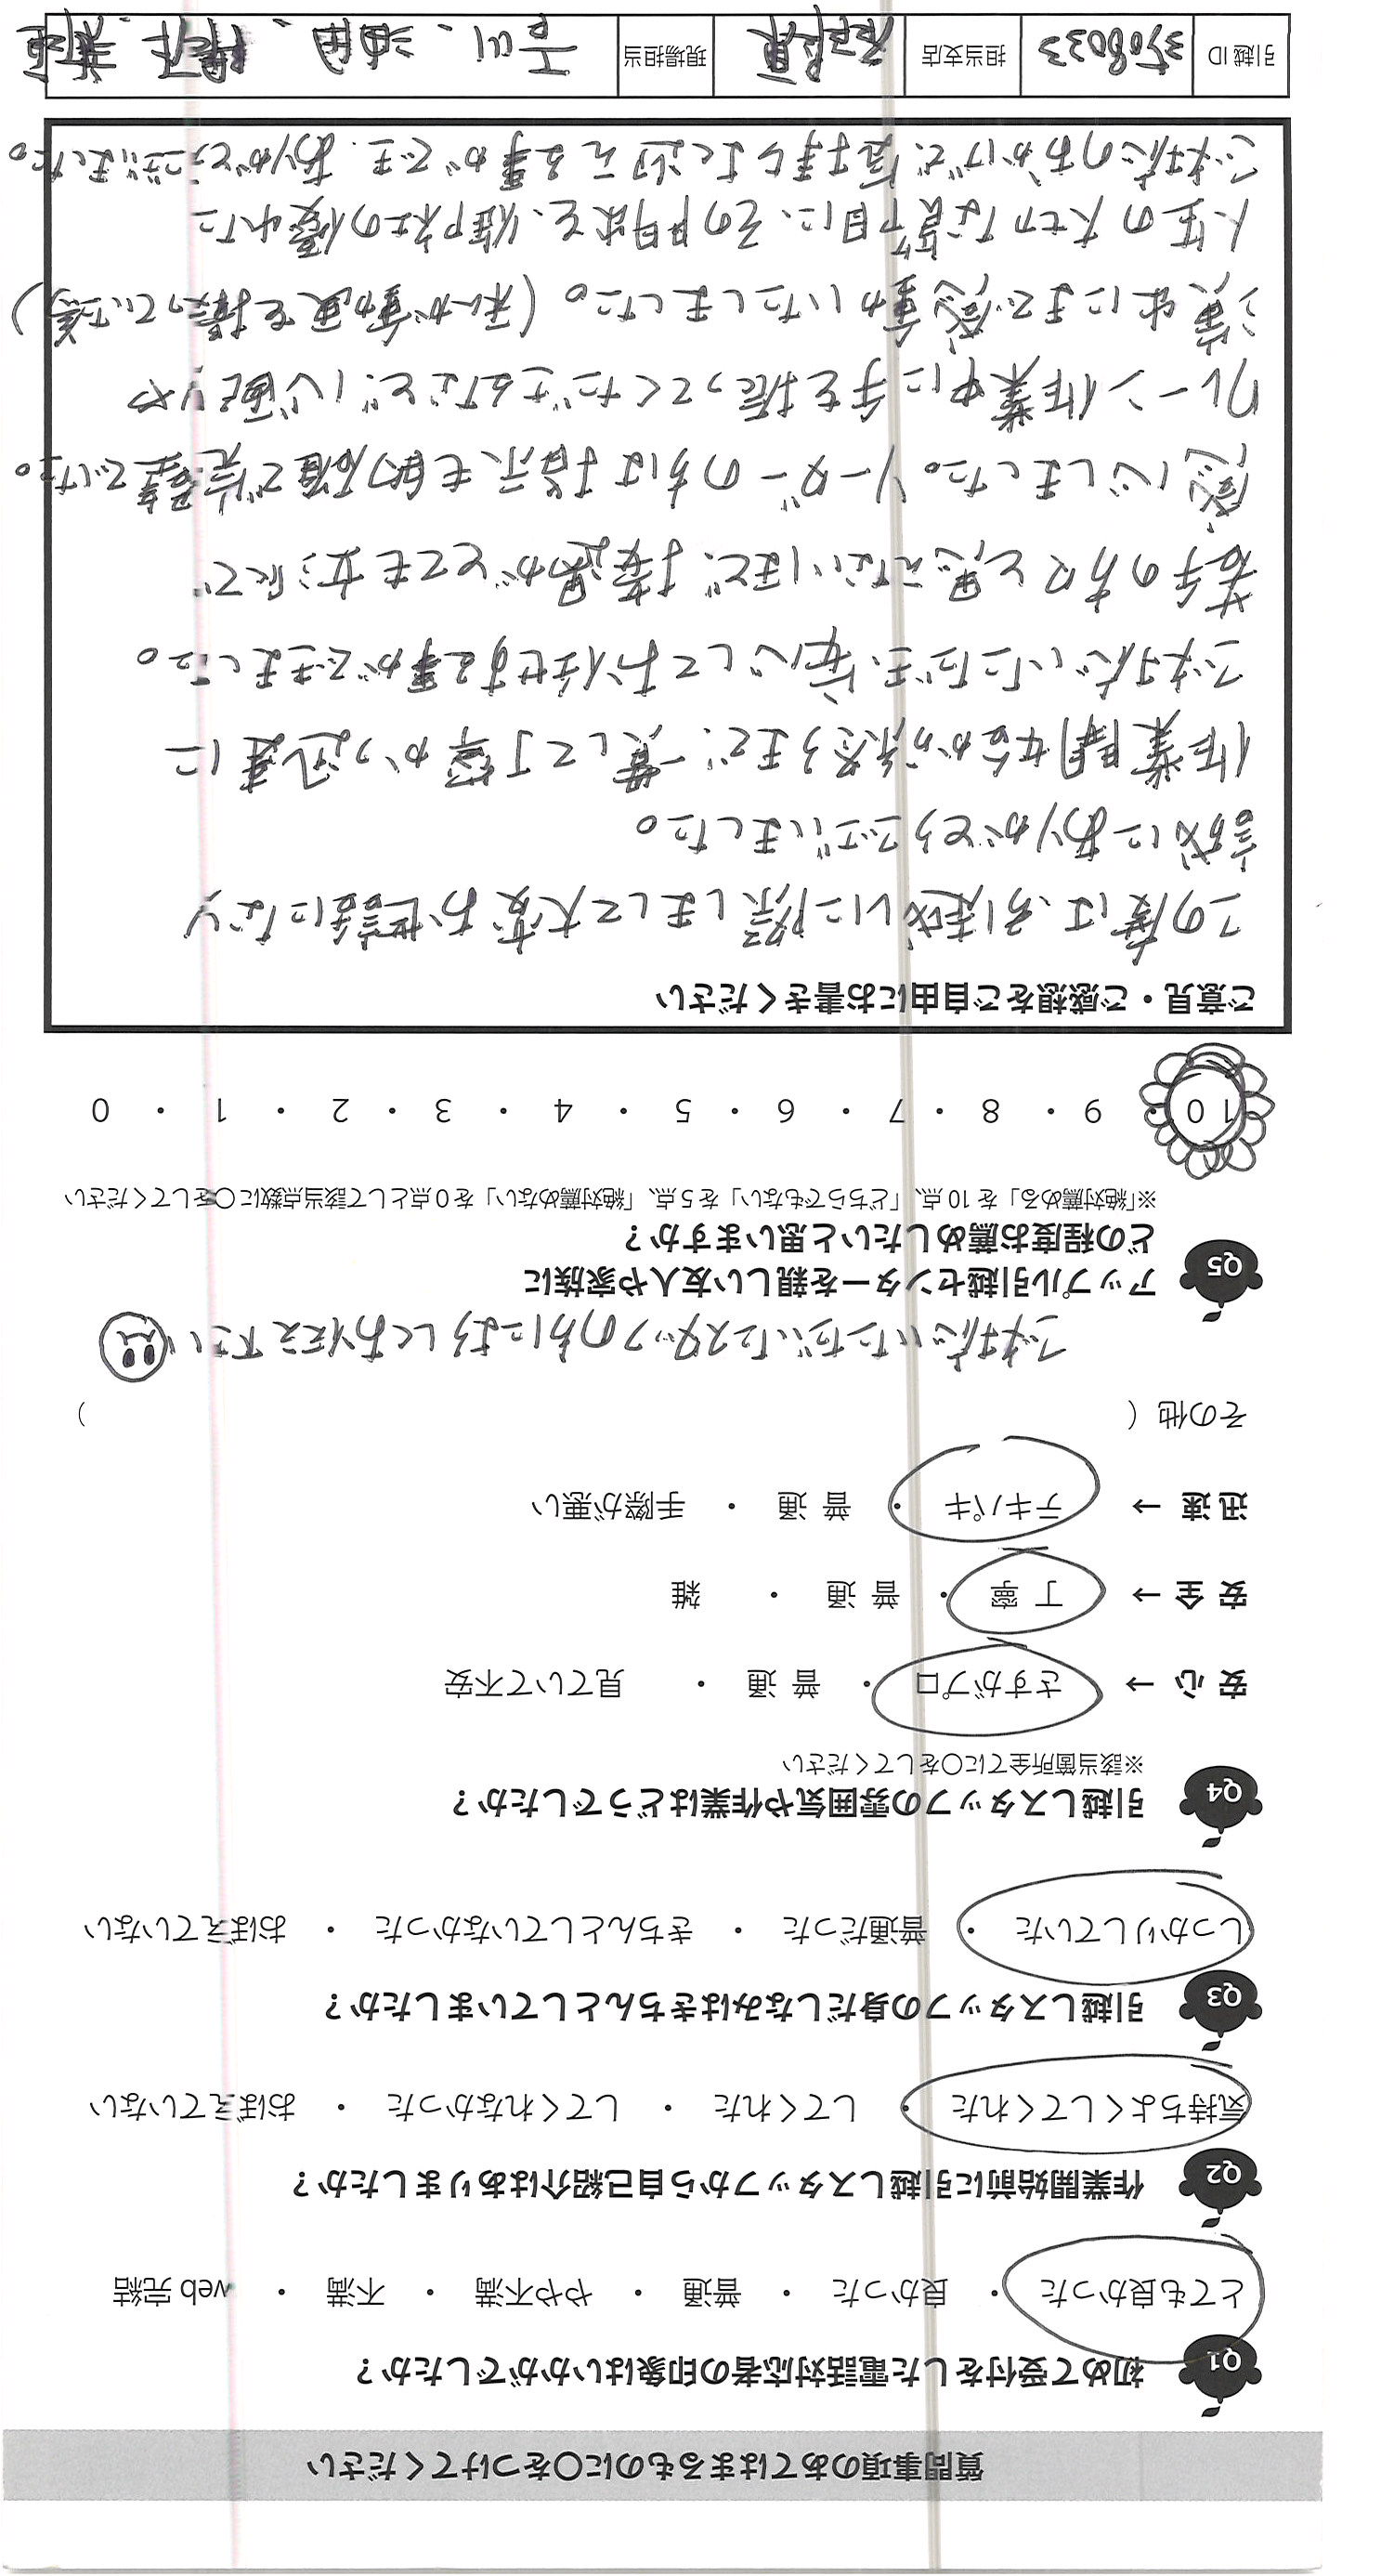 質問事項のあてはまるものに〇をつけてください
Q1 初めて受付をした電話対応者の印象はいかがでしたか？
とても良かった ・ 良かった ・ 普通 ・ やや不満 ・ 不満 ・ web 完結
Q2 作業開始前に引越しスタッフから自己紹介はありましたか？
気持ちよくしてくれた ・ してくれた ・ してくれなかった ・ おぼえていない
Q3 引越しスタッフの身だしなみはきちんとしていましたか？
しっかりしていた ・ 普通だった ・ きちんとしていなかった ・ おぼえていない
Q4 引越しスタッフの雰囲気や作業はどうでしたか？
※該当箇所全てに〇をしてください
安 心 → さすがプロ ・ 普 通 ・ 見ていて不安
安 全 → 丁 寧 ・ 普 通 ・ 雑
迅 速 → テキパキ ・ 普 通 ・ 手際が悪い
その他（ ）
いただいたスタッフの方によろしくお伝え下さい
Q5 アップル引越センターを親しい友人や家族に
どの程度お薦めしたいと思いますか？
※「絶対薦める」を 10 点、「どちらでもない」を 5 点、「絶対薦めない」を 0 点として該当点数に〇をしてください
10 ・ 9 ・ 8 ・ 7 ・ 6 ・ 5 ・ 4 ・ 3 ・ 2 ・ 1 ・ 0
ご意見・ご感想をご自由にお書きください
この度は、引越しに際しまして大変お世話になり
誠にありがとうございました。
作業開始から終りまで、一貫して丁寧かつ迅速に
いただき、安心してお任せする事ができました。
若手の方々と思えないほど、接遇がとても立派で
感心しました。リーダーの方は指示も的確で完璧でした。
クレーン作業中に手を振ってくださるなど、心配りや
演出にまで感動いたしました。（私が動画を撮っていた為）
人生の大切な節目に、その門出を、御社の優れた
のおかげで、気持ちよく迎える事ができ、ありがとうございました。
引越 ID 担当支店 現場担当 吉川、池田、